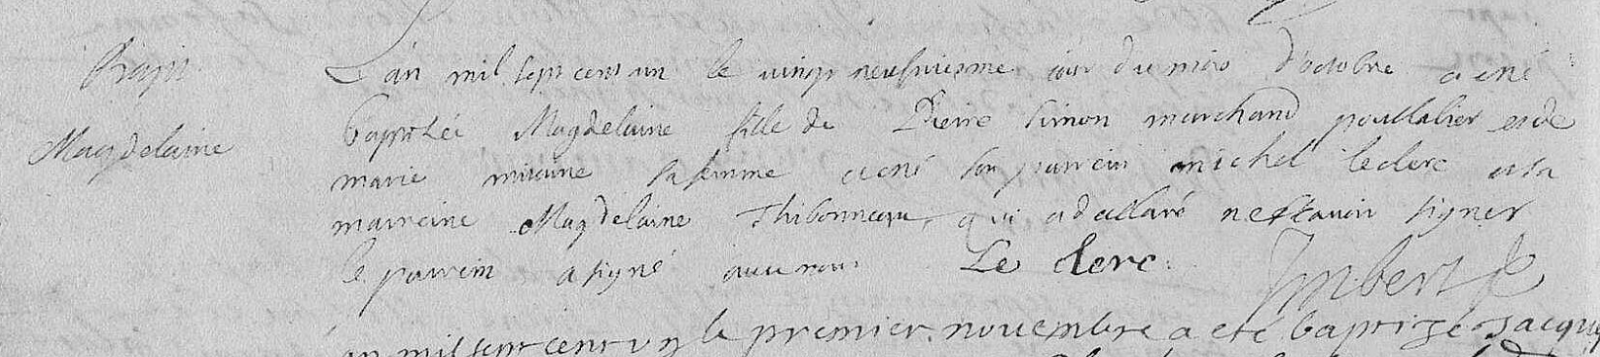 Bapt.
Magdelaine
L'an mil sept cent un le vingt neufviesme jour du mois d'octobre a esté
baptisée Magdelaine fille de Pierre Simon marchand poullalier et de
marie sa femme a esté son parrein michel leclerc et sa
marreine Magdelaine qui a declaré ne scavoir signer
le parrein a signé avec nous Le clerc. Imbert
an mil sept cent un le premier novembre a eté baptizé Jacque